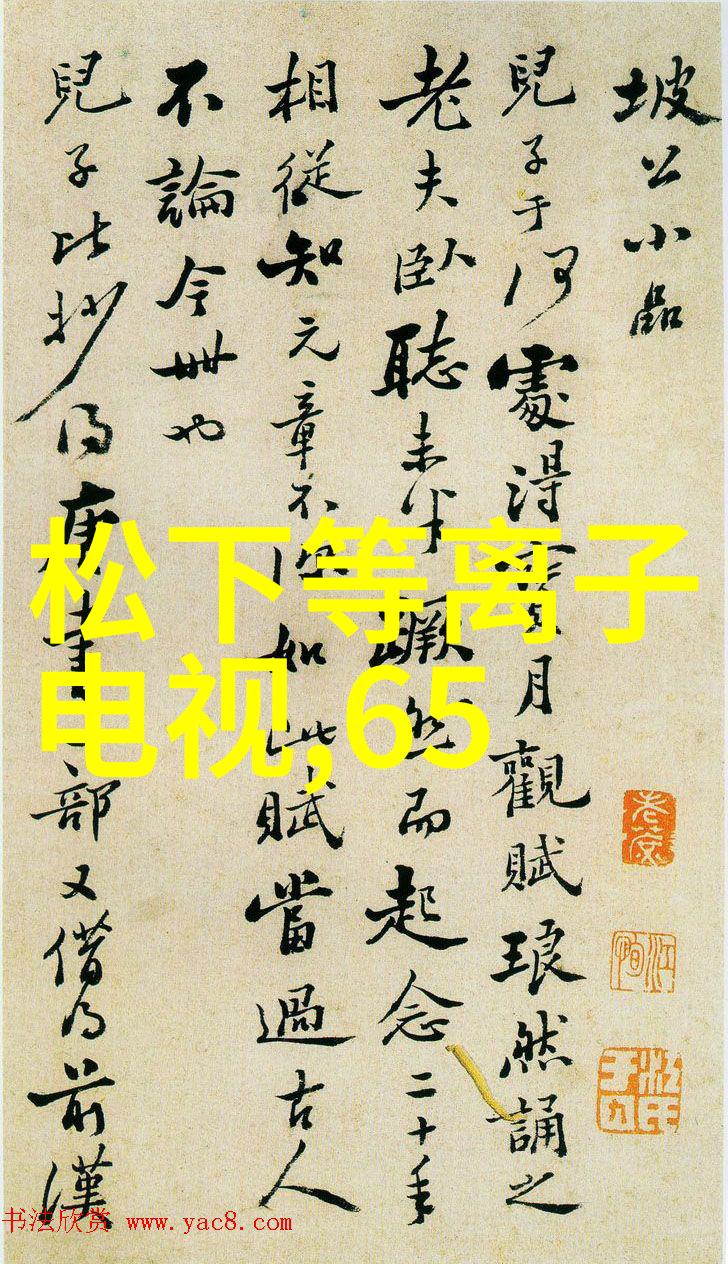 坡公小品
兒子于何處得寶月觀賦琅然誦之
老夫臥聽未半蹶然而起念二十年
相從知元章不如此賦當過古人
不論今世也
兒子比抄得唐書一部又借得前漢
松下等离子
电视,65
书法欣赏 www.yac8.com